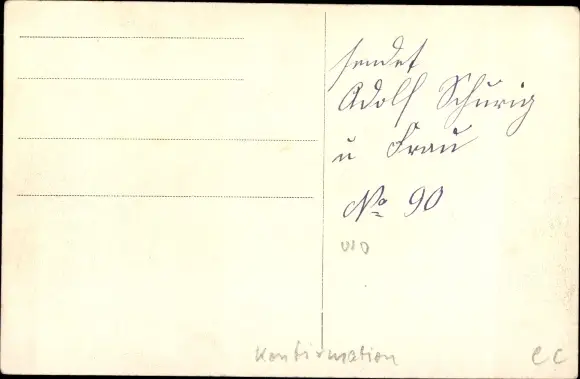 sendet
Adolf Schurig
u Frau
No 90
Konfirmation
CC